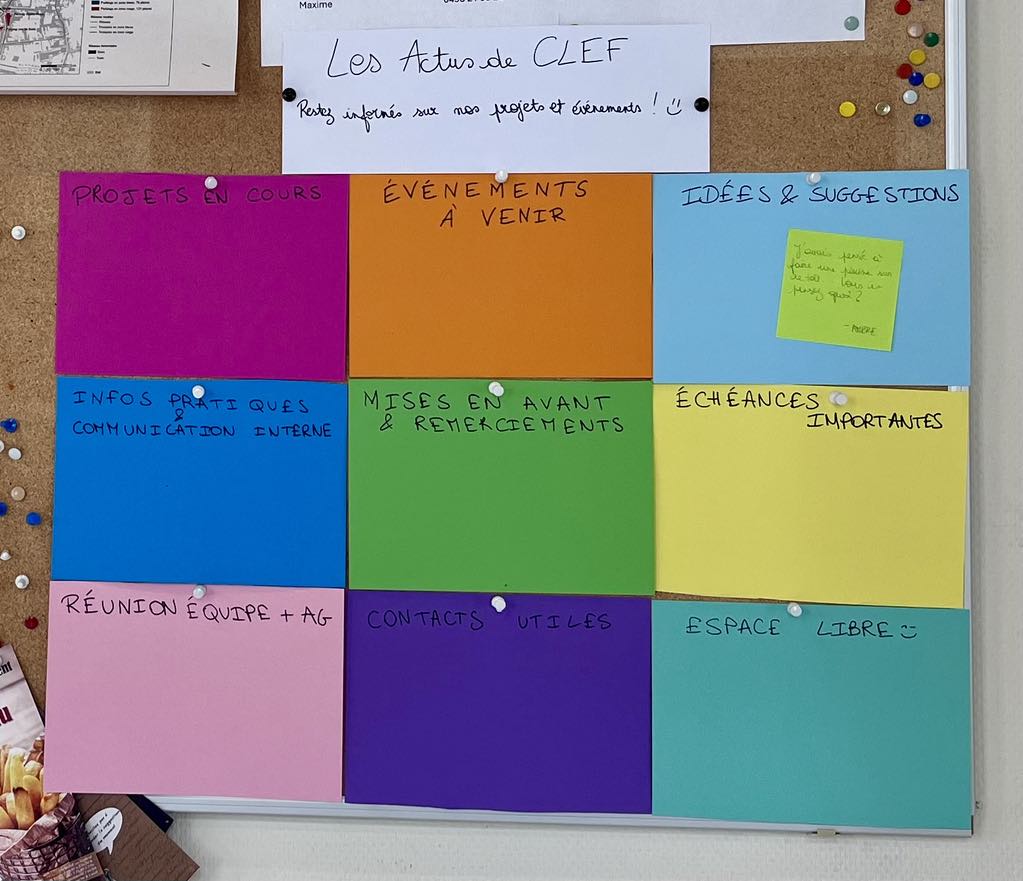 Maxime
Les Actus de CLEF
Restez informés sur nos projets et événements ! :)
PROJETS EN COURS
ÉVÉNEMENTS
À VENIR
IDÉES & SUGGESTIONS
J'avais pensé à
faire une piscine sur
le toit Vous en
pensez quoi ?
INFOS PRATIQUES
&
COMMUNICATION INTERNE
MISES EN AVANT
& REMERCIEMENTS
ÉCHÉANCES
IMPORTANTES
RÉUNION ÉQUIPE + AG
CONTACTS UTILES
ESPACE LIBRE :)